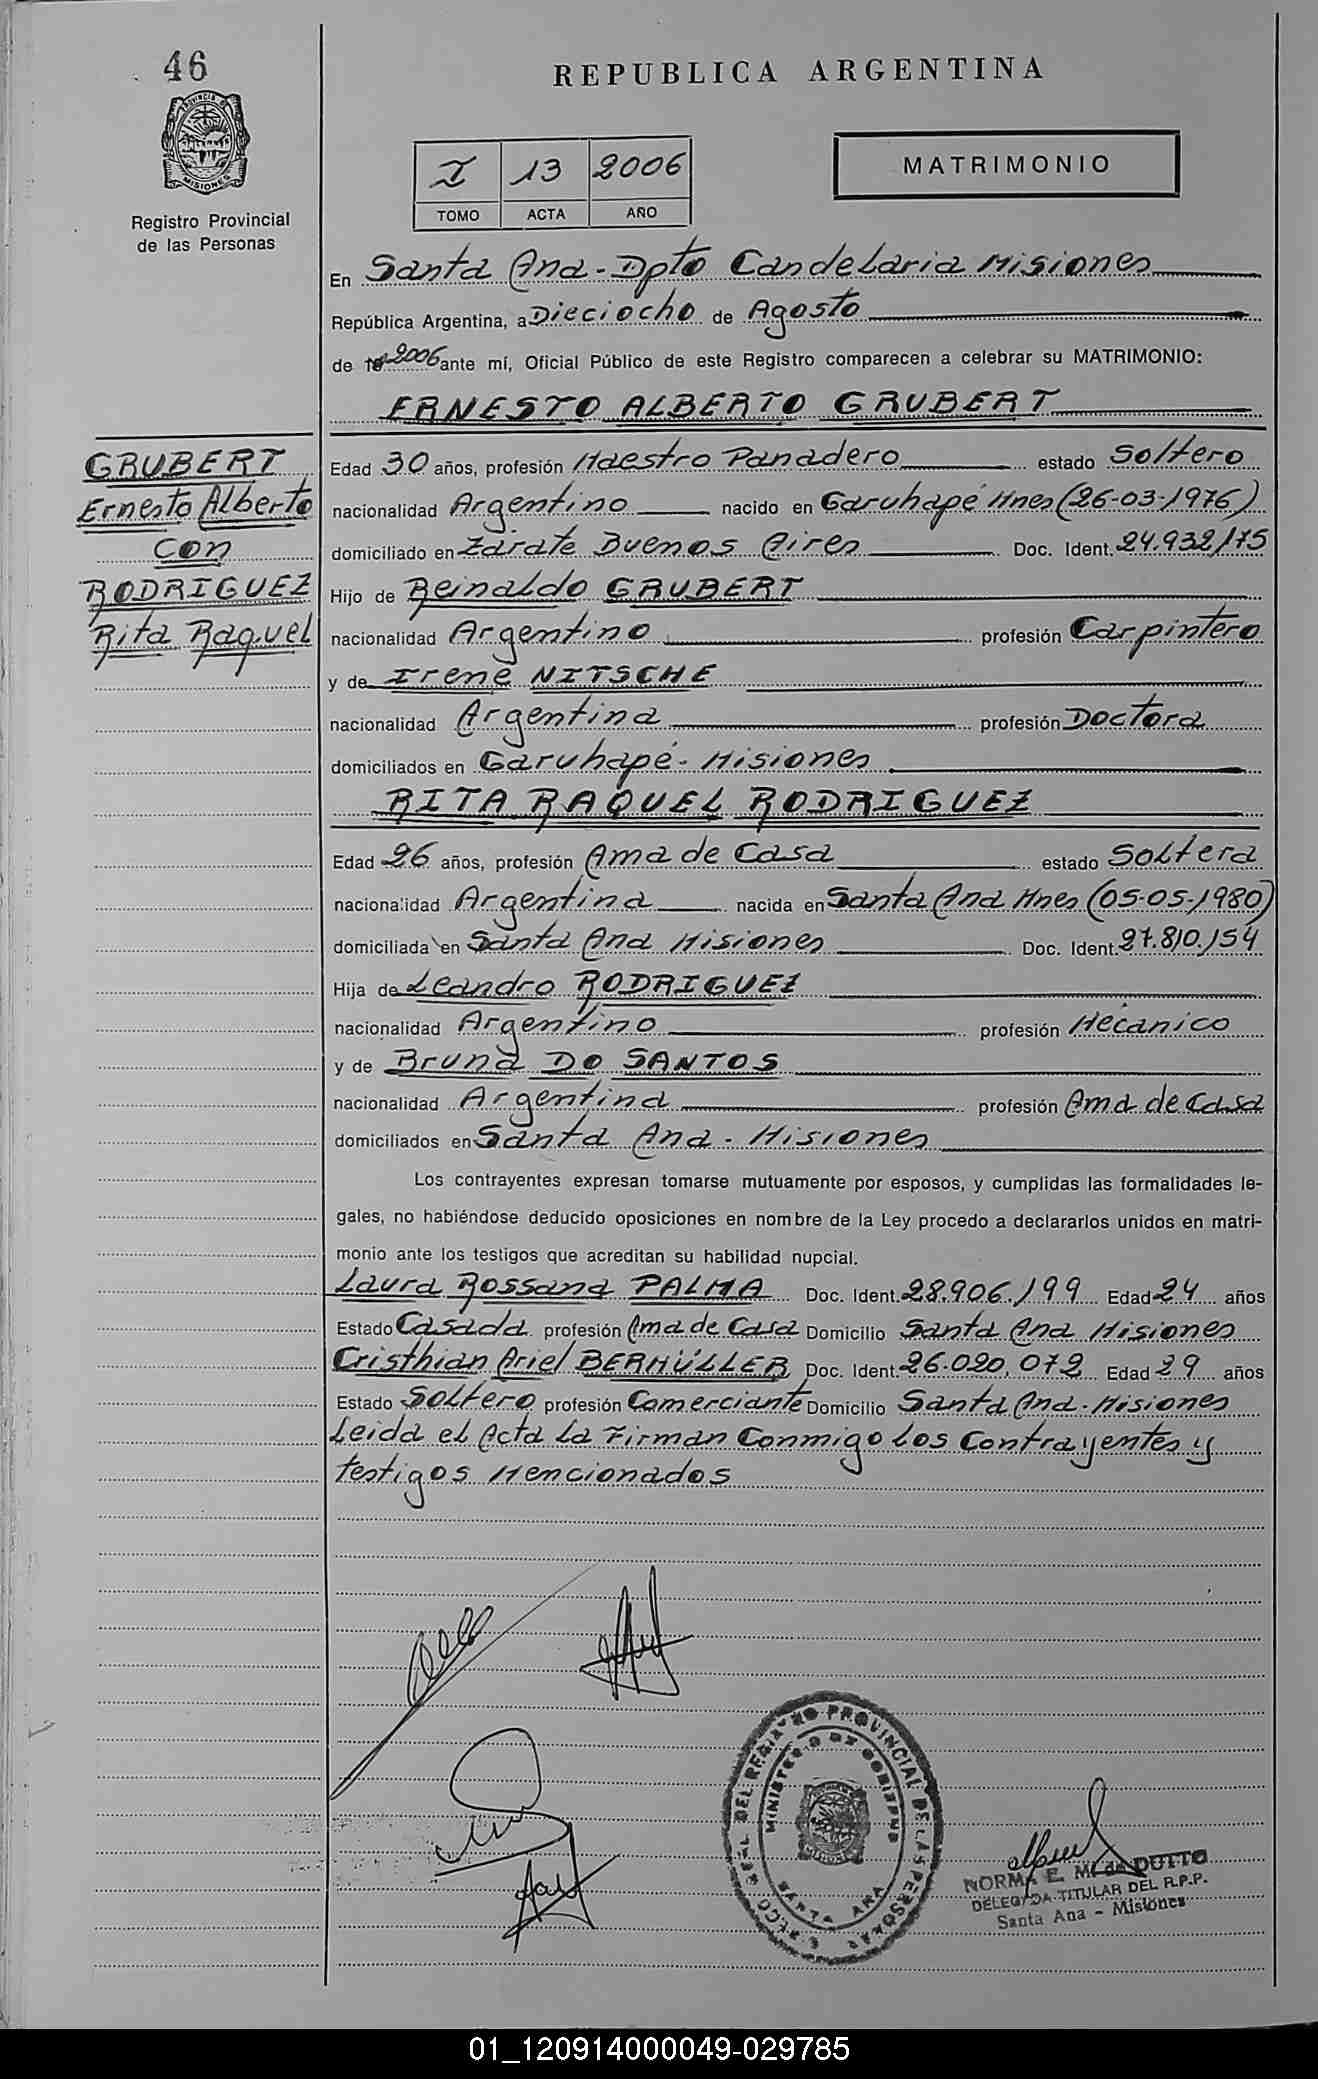 46
REPUBLICA ARGENTINA
PROVINCIA DE
MISIONES
Registro Provincial
de las Personas
I 13 2006
TOMO ACTA AÑO
MATRIMONIO
En Santa Ana - Dpto Candelaria Misiones
República Argentina, a Dieciocho de Agosto
de 19 2006 ante mí, Oficial Público de este Registro comparecen a celebrar su MATRIMONIO:
ERNESTO ALBERTO GRUBERT
GRUBERT
Ernesto Alberto
con
RODRIGUEZ
Rita Raquel
Edad 30 años, profesión Maestro Panadero estado Soltero
nacionalidad Argentino nacido en Garuhapé Mnes (26-03-1976)
domiciliado en Zárate Buenos Aires Doc. Ident. 24.932.175
Hijo de Reinaldo GRUBERT
nacionalidad Argentino profesión Carpintero
y de Irene NITSCHE
nacionalidad Argentina profesión Doctora
domiciliados en Garuhapé - Misiones
RITA RAQUEL RODRIGUEZ
Edad 26 años, profesión Ama de Casa estado Soltera
nacionalidad Argentina nacida en Santa Ana Mnes (05-05-1980)
domiciliada en Santa Ana Misiones Doc. Ident. 27.810.154
Hija de Leandro RODRIGUEZ
nacionalidad Argentino profesión Mecánico
y de Bruna DO SANTOS
nacionalidad Argentina profesión Ama de Casa
domiciliados en Santa Ana - Misiones
Los contrayentes expresan tomarse mutuamente por esposos, y cumplidas las formalidades le-
gales, no habiéndose deducido oposiciones en nombre de la Ley procedo a declararlos unidos en matri-
monio ante los testigos que acreditan su habilidad nupcial.
Laura Rossana PALMA Doc. Ident. 28.906.199 Edad 24 años
Estado Casada profesión Ama de Casa Domicilio Santa Ana Misiones
Cristhian Ariel BERMÜLLER Doc. Ident. 26.020.072 Edad 29 años
Estado Soltero profesión Comerciante Domicilio Santa Ana - Misiones
Leida el Acta la Firman Conmigo los Contrayentes y
testigos Mencionados
DEL REGISTRO PROVINCIAL DE LAS PERSONAS
MINISTERIO DE GOBIERNO
MISIONES
SANTA ANA
NORMA E. M. de DUTTO
DELEGADA TITULAR DEL R.P.P.
Santa Ana - Misiones
01_120914000049-029785